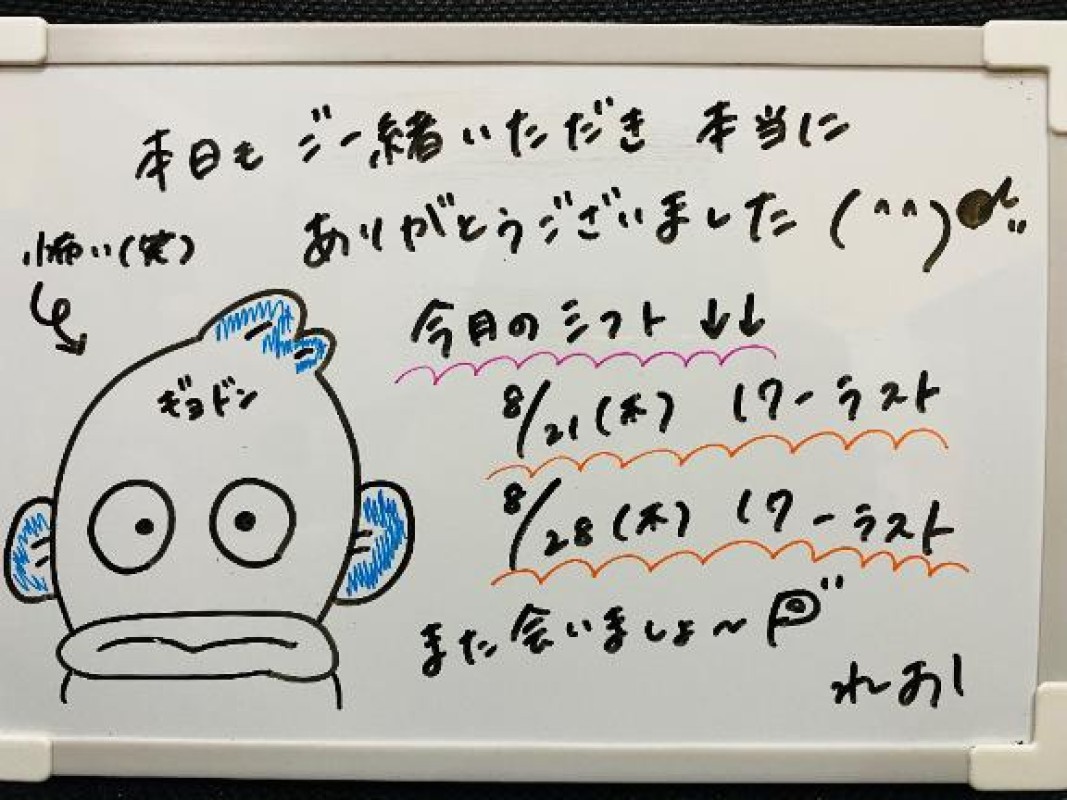 本日も ご一緒いただき 本当に
ありがとうございました (^^)♪
小怖い(笑)
ギョドン
今月のシフト ↓↓
8/21(木) 17-ラスト
8/28(木) 17-ラスト
また会いましょ〜